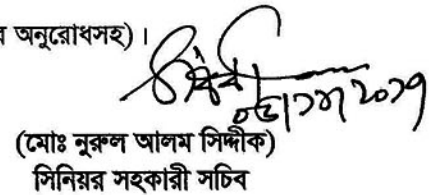 র অনুরোধসহ)।
(মোঃ নুরুল আলম সিদ্দীক)
সিনিয়র সহকারী সচিব